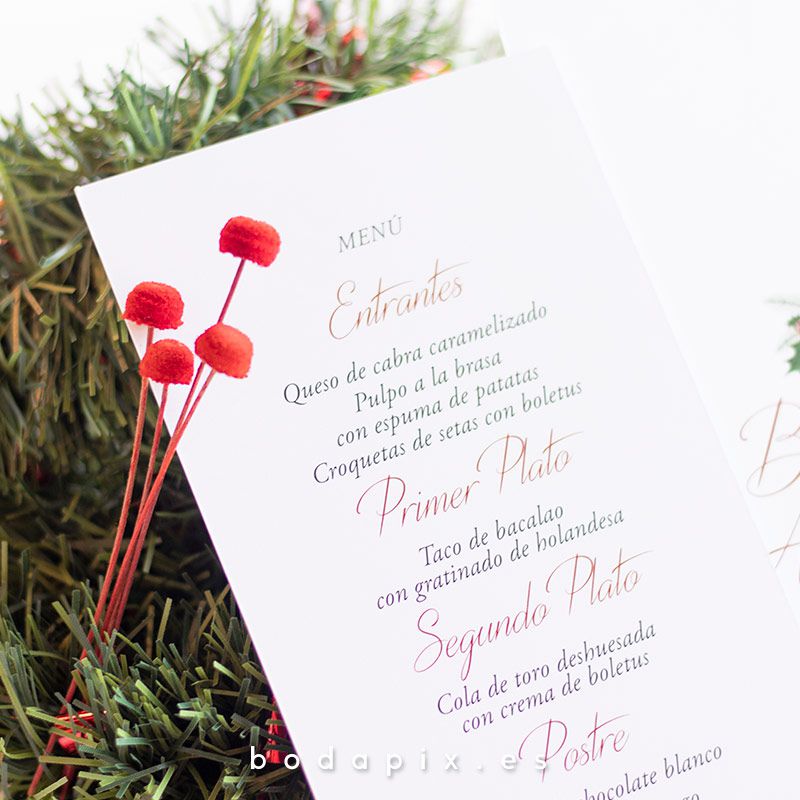 MENÚ
Entrantes
Queso de cabra caramelizado
Pulpo a la brasa
con espuma de patatas
Croquetas de setas con boletus
Primer Plato
Taco de bacalao
con gratinado de holandesa
Segundo Plato
Cola de toro deshuesada
con crema de boletus
Postre
chocolate blanco
bodapix.es